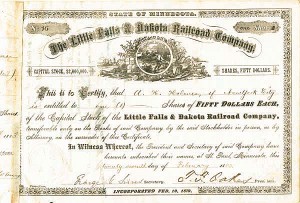 STATE OF MINNESOTA.
The Little Falls & Dakota Railroad Company
CAPITAL STOCK, $2,000,000. SHARES, FIFTY DOLLARS.
This is to Certify, that A. H. Holmes of New York City
is entitled to Shares of FIFTY DOLLARS EACH,
of the Capital Stock of the Little Falls & Dakota Railroad Company,
transferable only on the Books of said Company by the said Stockholder in person, or by
Attorney, on the surrender of this Certificate.
In Witness Whereof, the President and Secretary of said Company have
hereunto subscribed their names at St Paul, Minnesota, this
day of February
George Secretary. T. F. Oakes President.
INCORPORATED FEB. 18, 1879.